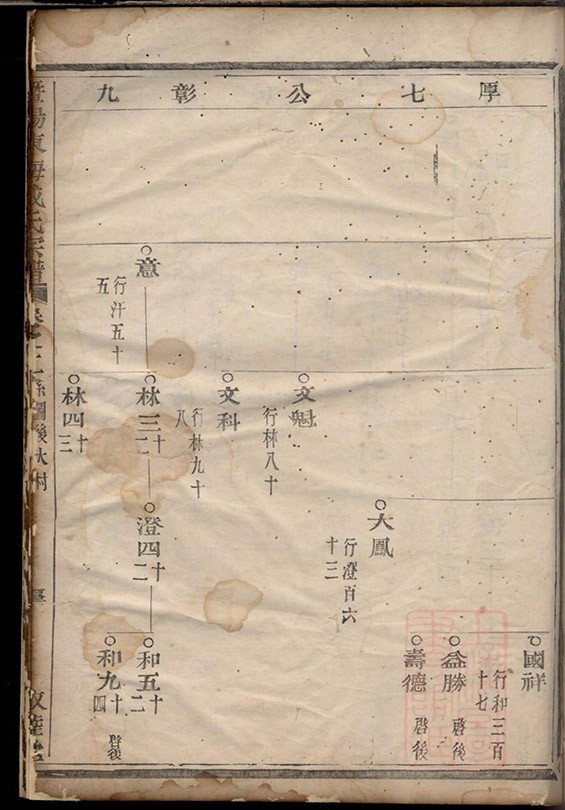 厚七公彰九
國祥
行和三百
十七
益勝
啓後
壽德
啓後
大鳳
行澄百六
十三
文魁
行林八十
文科
行林九十
八
意
行汗五十
五
林三十
二
澄四十
二
和五十
二
林四十
三
和九十
四
宗譜
系圖後大村